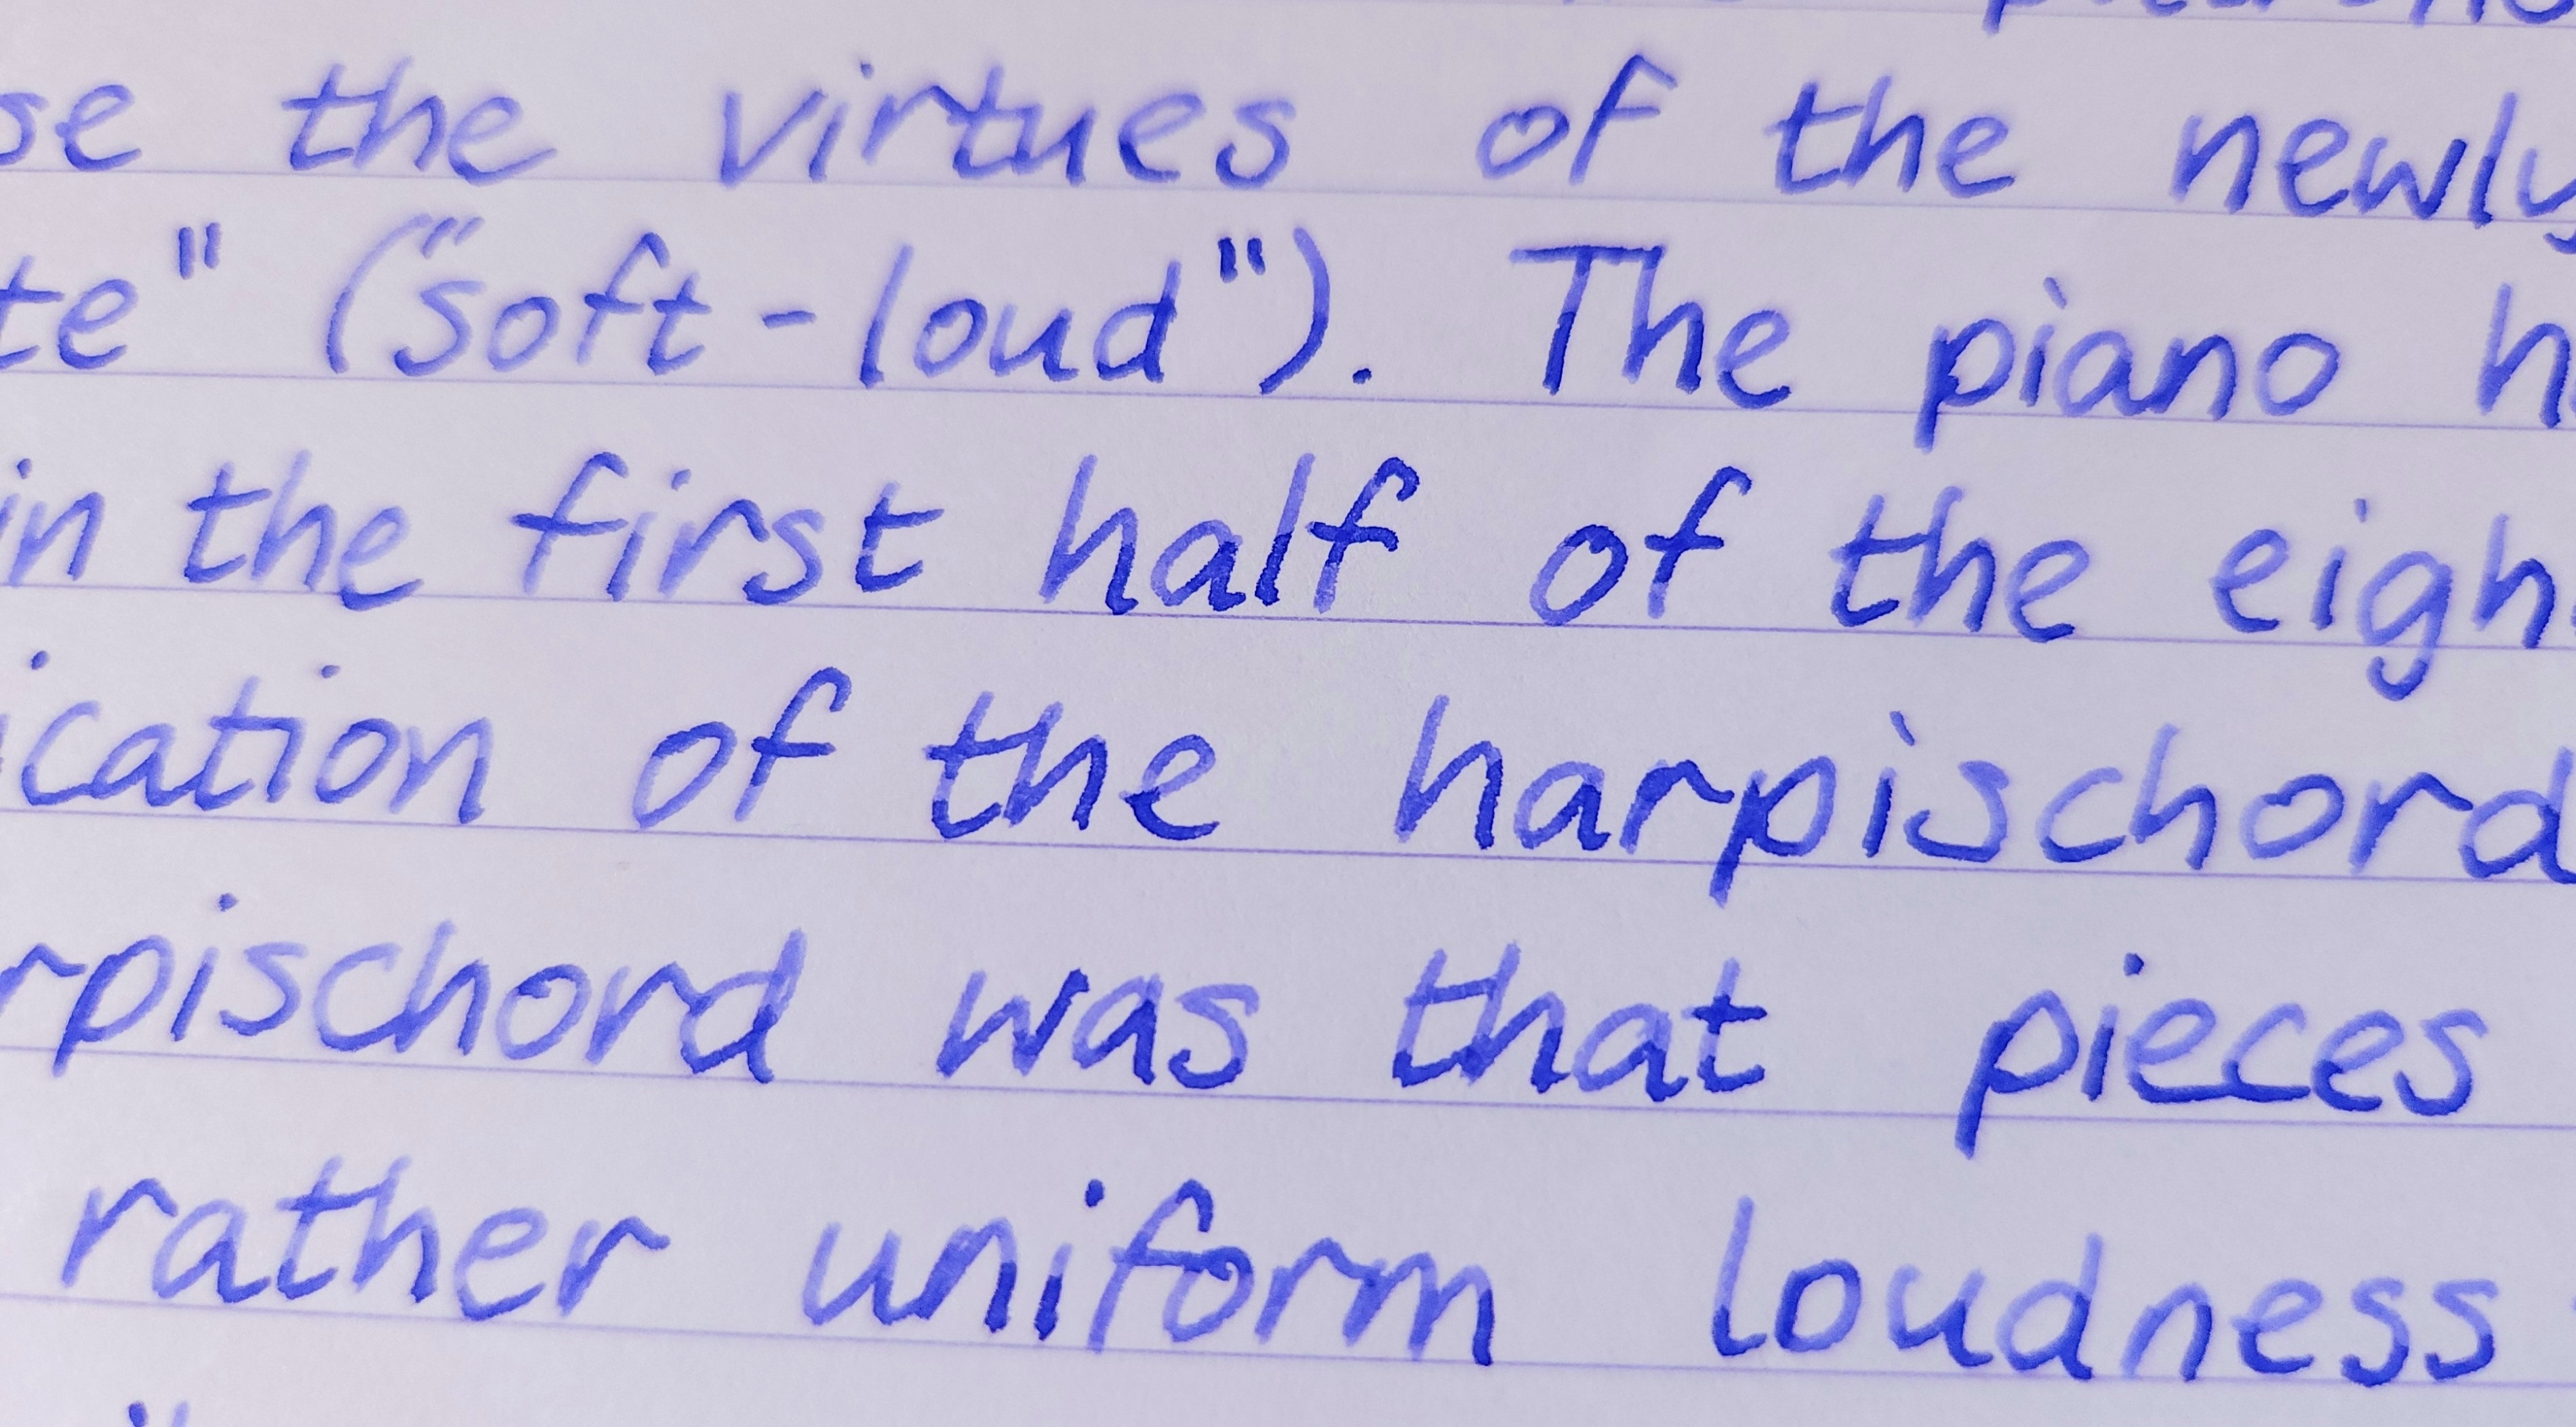 se the virtues of the newly
te" ("soft-loud"). The piano h
in the first half of the eigh
ication of the harpischord
rpischord was that pieces
rather uniform loudness